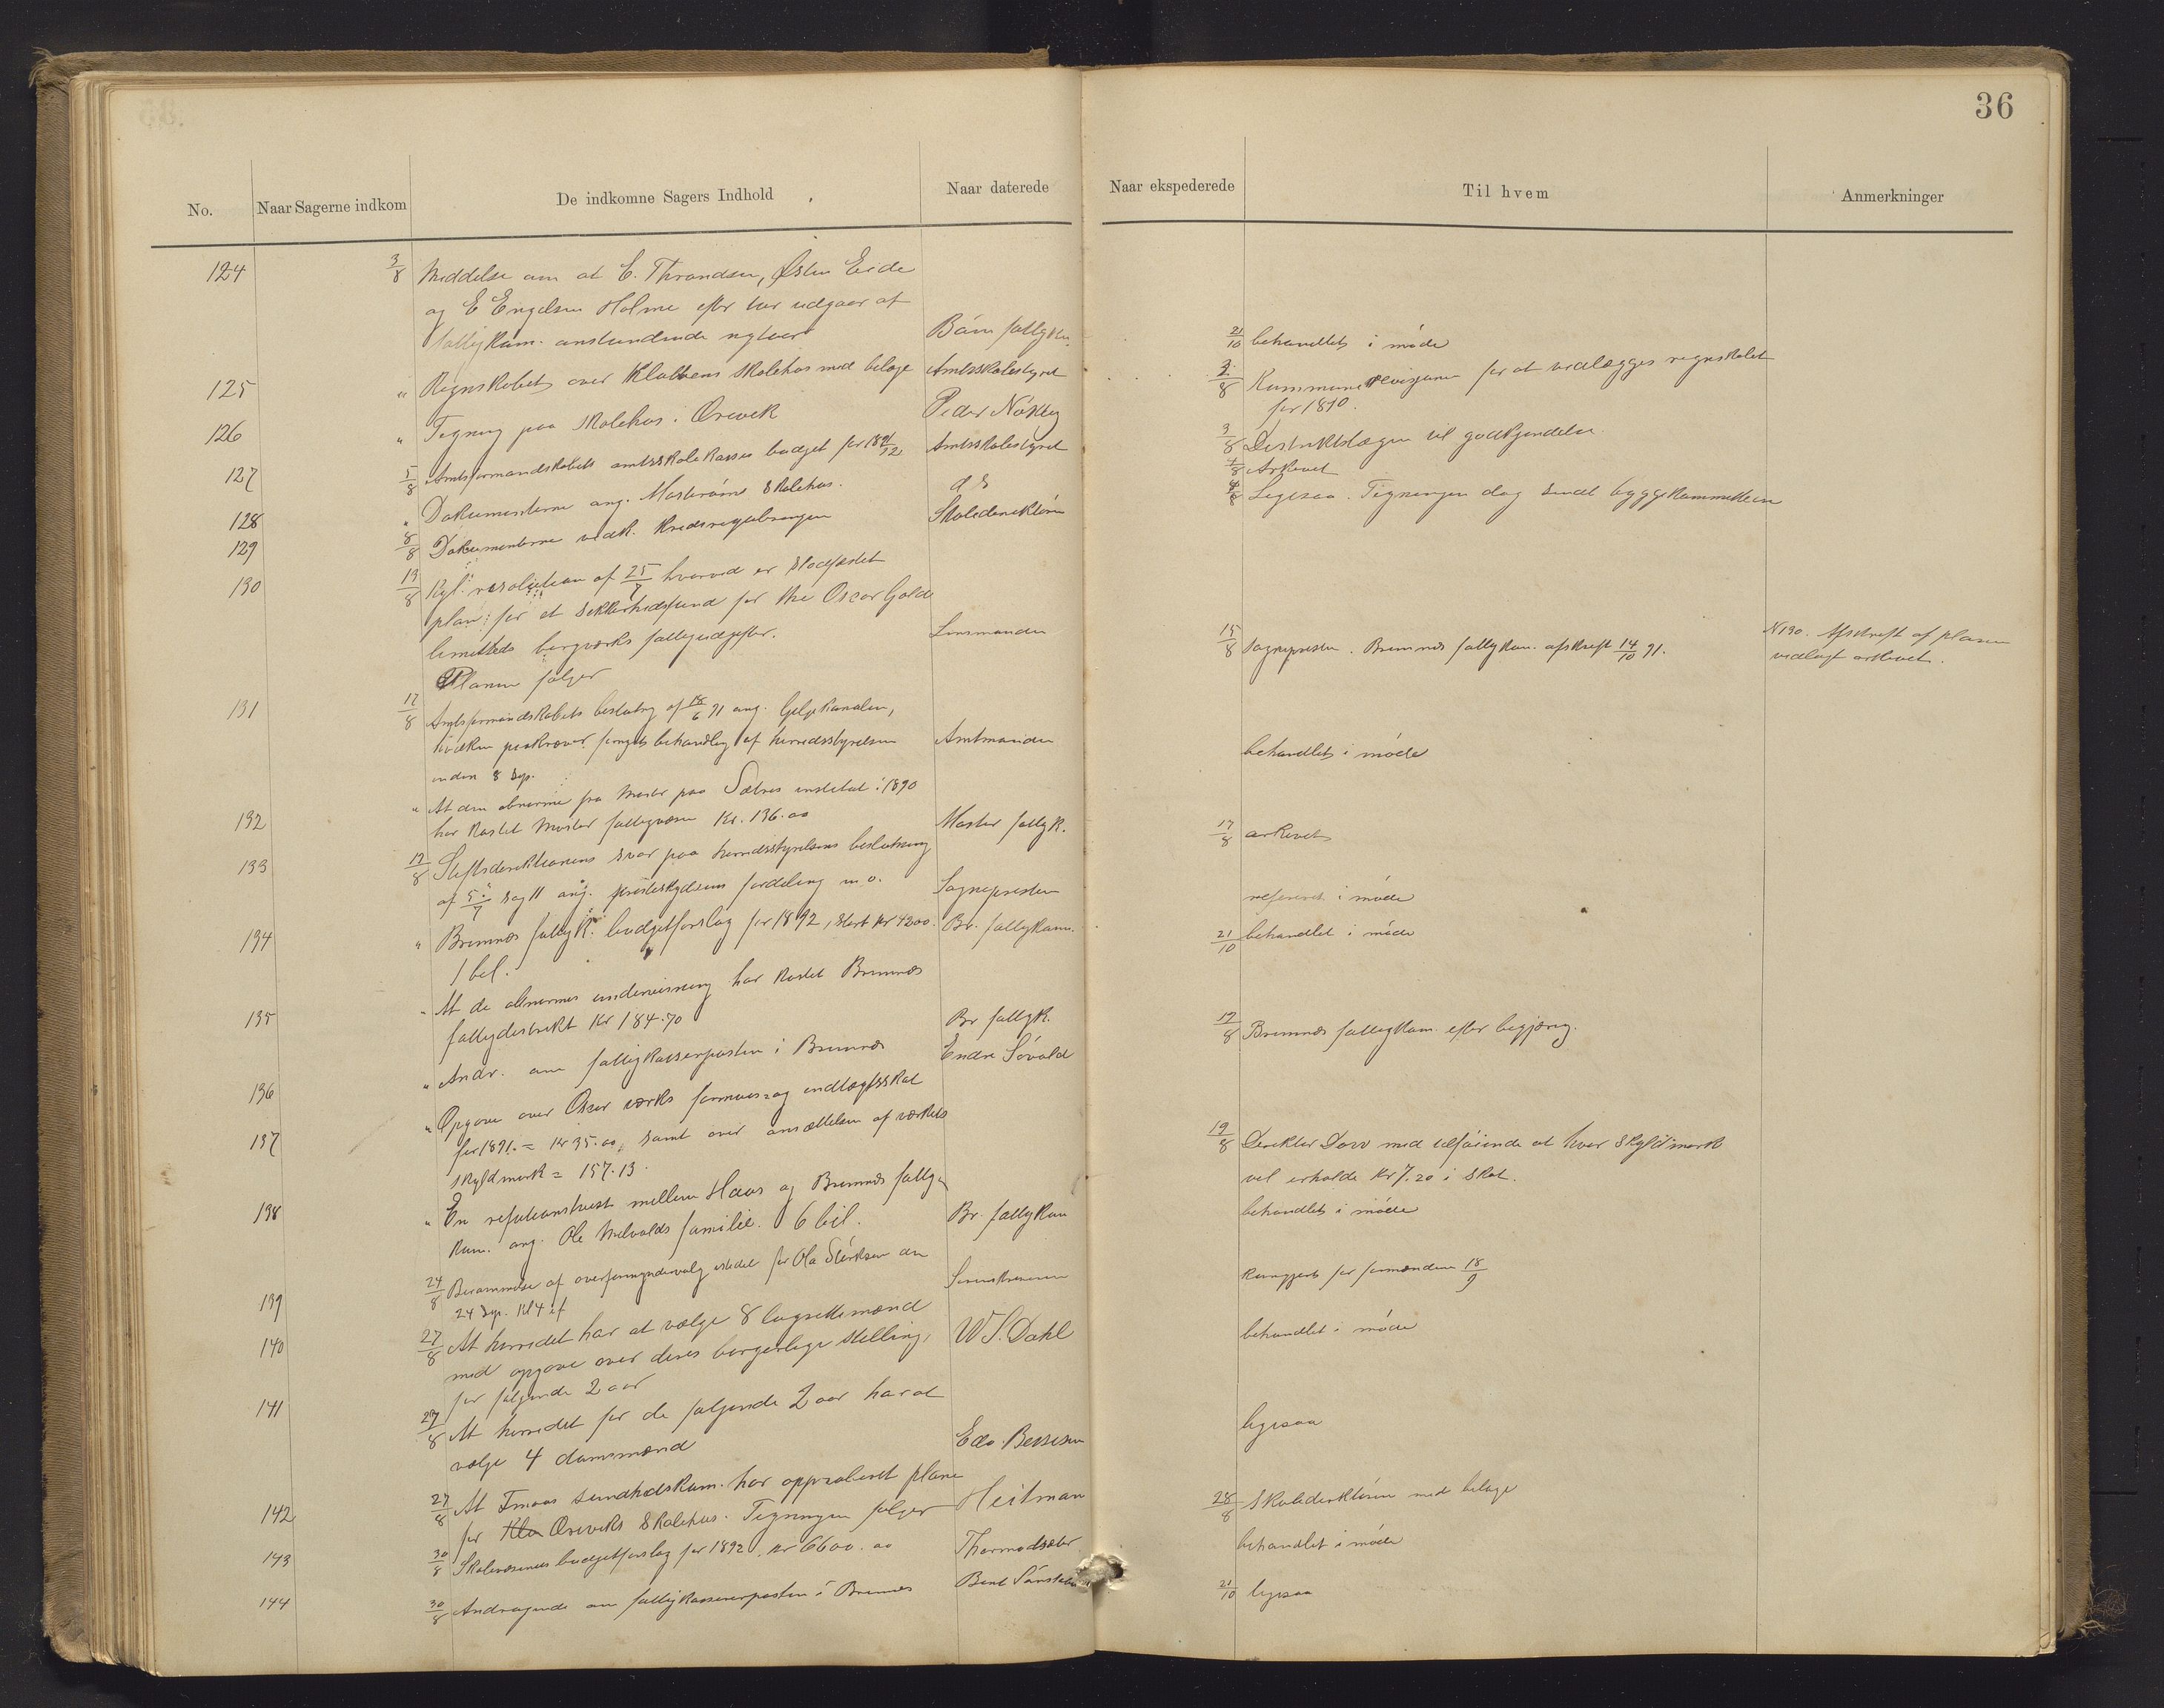 36
No.
Naar Sagerne indkom
De indkomne Sagers Indhold
Naar daterede
Naar ekspederede
Til hvem
Anmerkninger
124
3/8 Meddelse om at E. Thrandsen, Østen Eide
og E Engelsen Holme efter tur udgaar af
fattigkom. anstundende nytaar
Bømm fattigkom.
21/10 behandlet i møde
125
" Regnskabet over Klubbens skolehus med belage
Amtsskolestyret
3/8 Kommunerevisjonen for at vedlægges regnskabet
for 1890.
126
" Tegning paa skolehus i Ørevik
Peder Nøkling
3/8 Distriktslægen til godkjendelse
127
5/8 Amtsformandskabets amtsskolekasses budget for 1891/92
Amtsskolestyret
4/8 Arkivet
128
" Dokumenterne ang. Mosterøens skolehus.
d s
4/8 Ligesaa. Tegningen dog sendt byggekommitteen
129
8/8 Dokumenterne vedk. kredsreguleringen
Skoledirektøren
130
13/8 Kgl. resolution af 25/7 hvorved er stadfæstet
plan for et sikkerhedsfond for the Oscar Gold
limitteds bergværks fattigudgifter.
Planen følger
Lensmanden
15/8 Sognepresten. Bremnes fattigkom. afskrift 14/10 91.
N 130. Afskrift af planen
vedlagt arkivet.
131
17/8 Amtsformandskabets beslutng af 18/6 91 ang. Gjelgekanalen,
hvilken paakræver fornyet behandling af herredsstyrelsen
inden 8 Sep.
Amtmanden
behandlet i møde
132
" At den abnorme fra Moster paa Sætres institut i 1890
har kostet Moster fattigvæsen Kr. 136.00
Moster fattigk.
17/8 arkivet
133
17/8 Stiftsdirektionens svar paa herredsstyrelsens beslutning
af 5/7 sag 11 ang. presteskydsens fordeling m.v.
Sognepresten
refereret i møde
134
" Bremnes fattigk. budgetforslag for 1892, stort kr 4200.
1 bil.
Br. fattigkom.
21/10 behandlet i møde
135
" At de abnormes undervisning har kostet Bremnes
fattigdistrikt Kr 184.70
Br fattigk.
17/8 Bremnes fattigkom. efter begjæring.
136
" Andr. om fattigkasserposten i Bremnes
Endre Søvold
137
" Opgave over Oscar værks formues- og indtægtsskat
for 1891. = Kr 35.00, samt over ansættelsen af værkets
skyldmark = 157.13.
19/8 Direktør Daw med tilføiende at hver skyldmark
vil erholde Kr 7.20 i skat.
138
" En refusionstvist mellem Haus og Bremnes fattig-
kom. ang. Ole Melvolds familie. 6 bil.
Br. fattigkom
behandlet i møde
139
24/8 Berammelse af overformyndervalg istedet for Ola Størksen den
24 Sep. Kl 4 ef
Sorenskriveren
Kungjort for formanden 18/9
140
27/8 At herredet har at vælge 8 lagrettemænd
med opgave over deres borgerlige stilling,
for følgende 2 aar
W S. Dahl
behandlet i møde
141
27/8 At herredet for de følgende 2 aar har at
vælge 4 domsmænd
Edv. Bessesen
ligesaa
142
27/8 At Finaas sundhedskom. har approberet plane
for Klu Ørevik skolehus. Tegningen følger
Heitman
28/8 Skoledirektøren med belage
143
30/8 Skolevæsenets budgetforslag for 1892, kr 6600.00
Thormodsæter
behandlet i møde
144
30/8 Andragende om fattigkassererposten i Bremnes
Bent Sønstabø
21/10 ligesaa